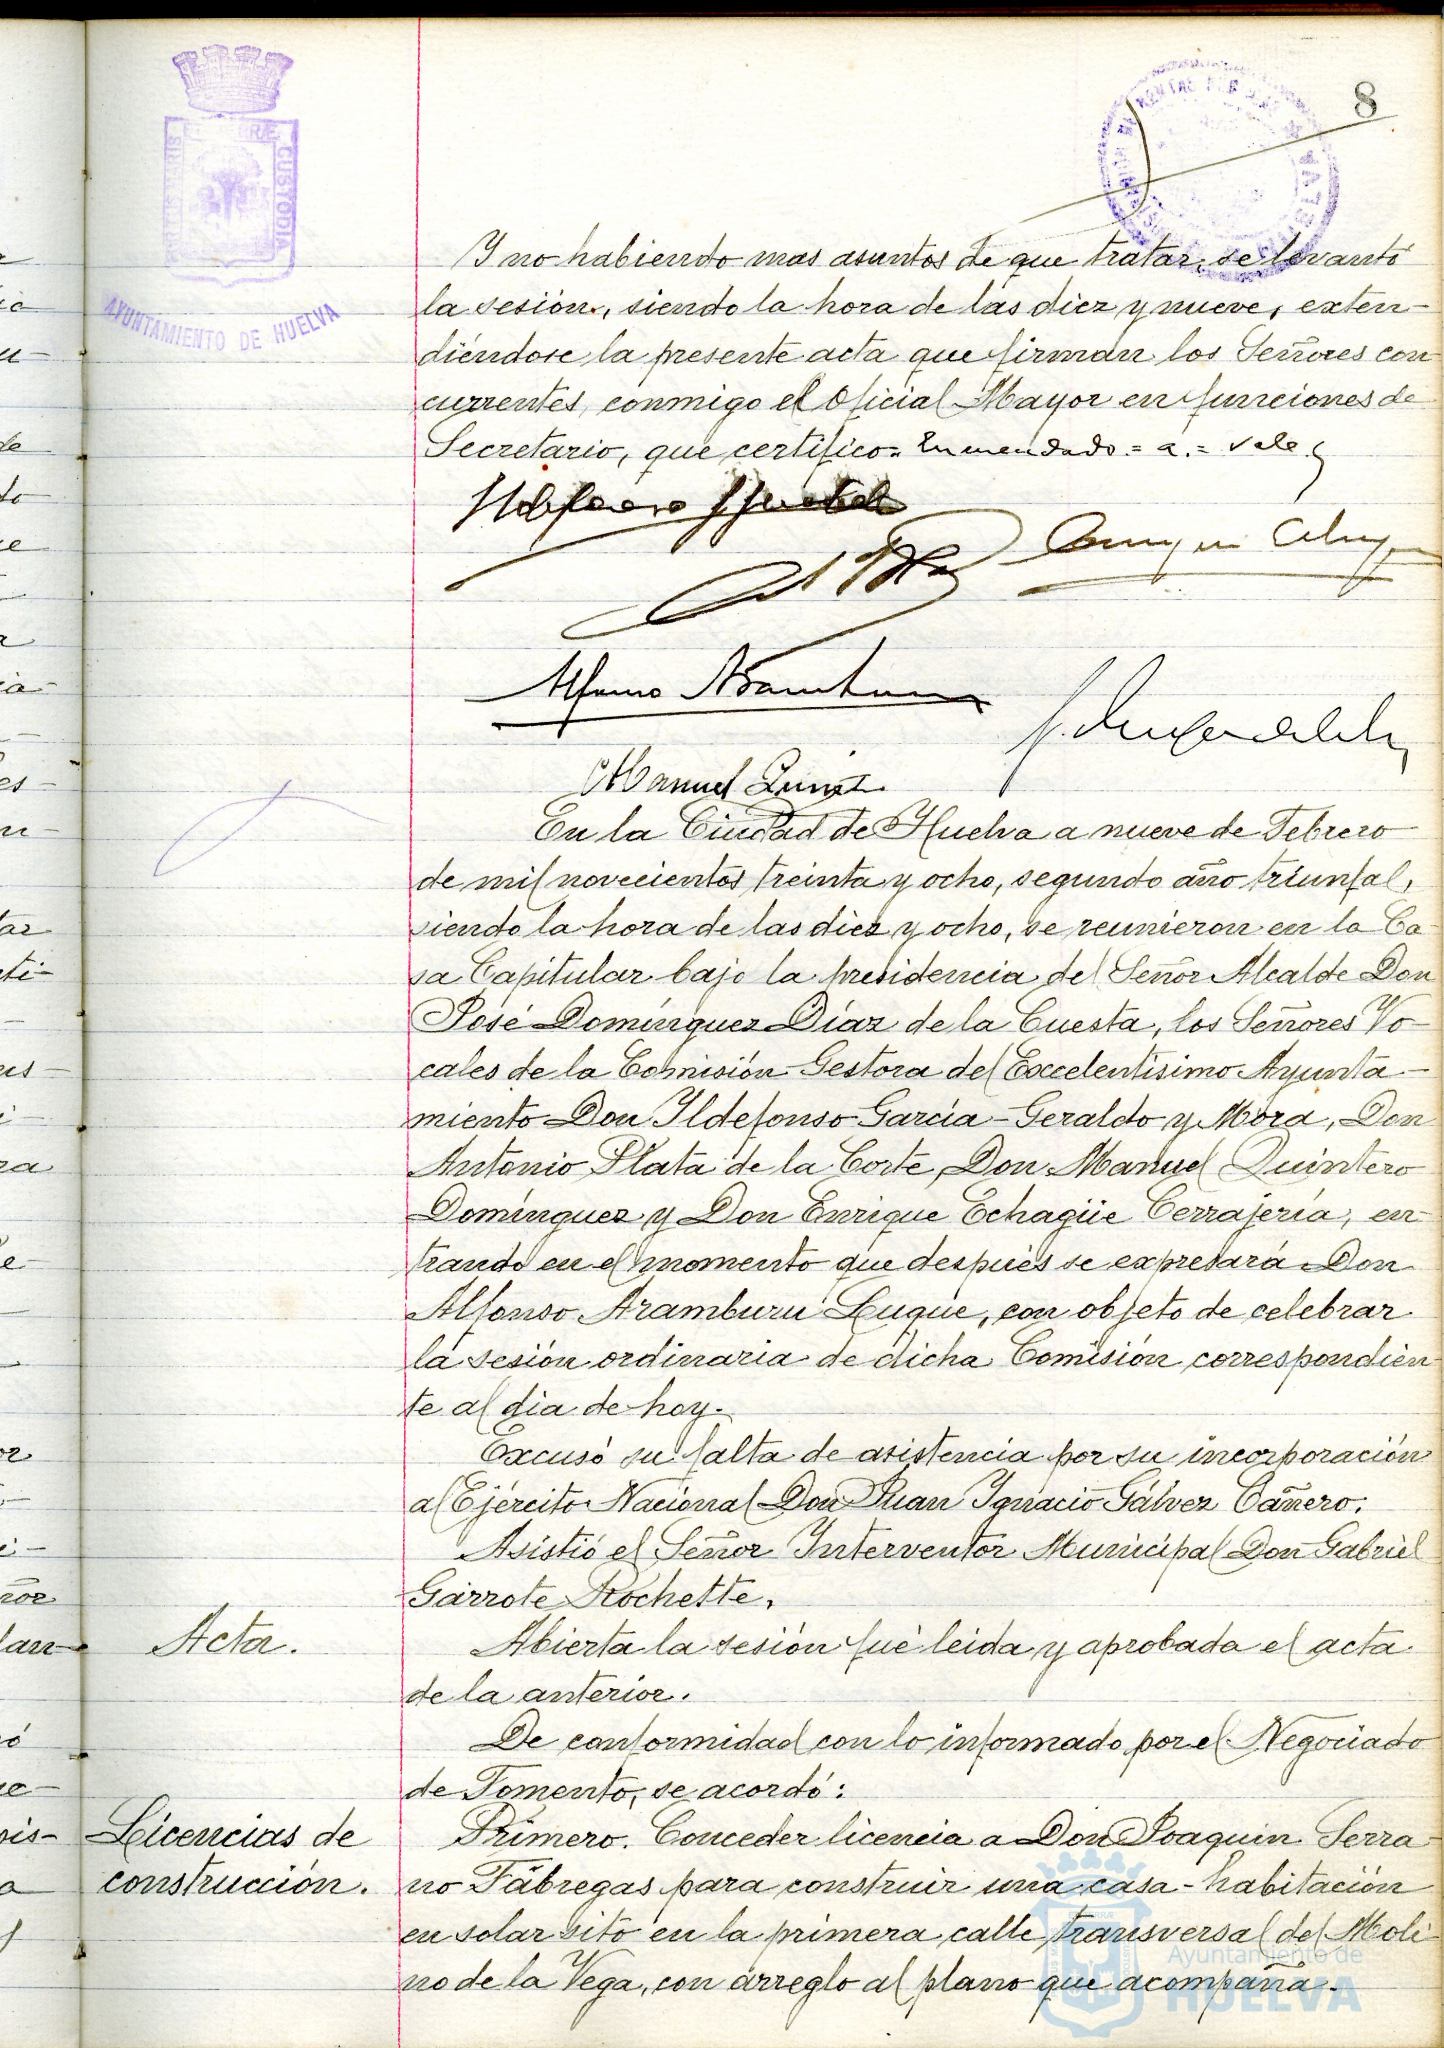 8
PORTUS MARIS ET TERRÆ CUSTODIA
AYUNTAMIENTO DE HUELVA
Y no habiendo mas asuntos de que tratar, se levantó
la sesión, siendo la hora de las diez y nueve, exten-
diéndose la presente acta que firman los Señores con-
currentes, conmigo el Oficial Mayor en funciones de
Secretario, que certifico= Enmendado = a. = Vale.
Alfonso Aramburu
Manuel
En la Ciudad de Huelva a nueve de Febrero
de mil novecientos treinta y ocho, segundo año triunfal,
siendo la hora de las diez y ocho, se reunieron en la Ca-
sa Capitular bajo la presidencia del Señor Alcalde Don
José Domínguez Díaz de la Cuesta, los Señores Vo-
cales de la Comisión Gestora del Excelentísimo Ayunta-
miento Don Ildefonso García-Geraldo y Mora, Don
Antonio Plata de la Corte, Don Manuel Quintero
Domínguez y Don Enrique Echagüe Cerrajería, en-
trando en el momento que después se expresará Don
Alfonso Aramburu Luque, con objeto de celebrar
la sesión ordinaria de dicha Comisión correspondien-
te al dia de hoy.
Excusó su falta de asistencia por su incorporación
al Ejército Nacional Don Juan Ignacio Gálvez Cañero.
Asistió el Señor Interventor Municipal Don Gabriel
Garrote Rochette.
Acta.
Abierta la sesión fué leida y aprobada el acta
de la anterior.
De conformidad con lo informado por el Negociado
de Fomento, se acordó:
Licencias de
construcción.
Primero. Conceder licencia a Don Joaquin Serra-
no Fábregas para construir una casa-habitación
en solar sito en la primera calle transversal del Moli-
no de la Vega, con arreglo al plano que acompaña.
Ayuntamiento de
HUELVA